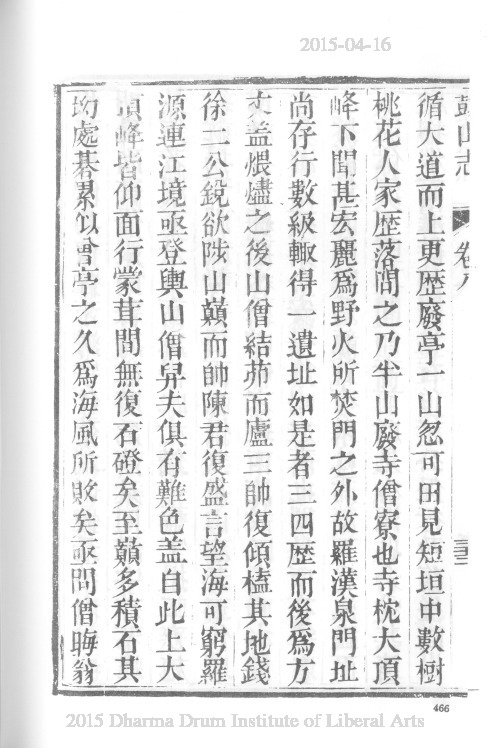 2015-04-16
鼓山志 卷八 三三
循大道而上更歷廢亭一山忽可田見短垣中數樹
桃花人家歷落間之乃半山廢寺僧寮也寺枕大頂
峰下聞甚宏麗爲野火所焚門之外故羅漢泉門址
尚存行數級輙得一遺址如是者三四歷而後爲方
丈蓋煨燼之後山僧結茆而廬三帥復傾橀其地錢
徐二公銳欲陟山巔而帥陳君復盛言望海可窮羅
源連江境亟登輿山僧舁夫俱有難色蓋自此上大
頂峰皆仰面行蒙茸間無復石磴矣至巔多積石其
均處碁累似曾亭之久爲海風所敗矣亟問僧晦翁
466
2015 Dharma Drum Institute of Liberal Arts